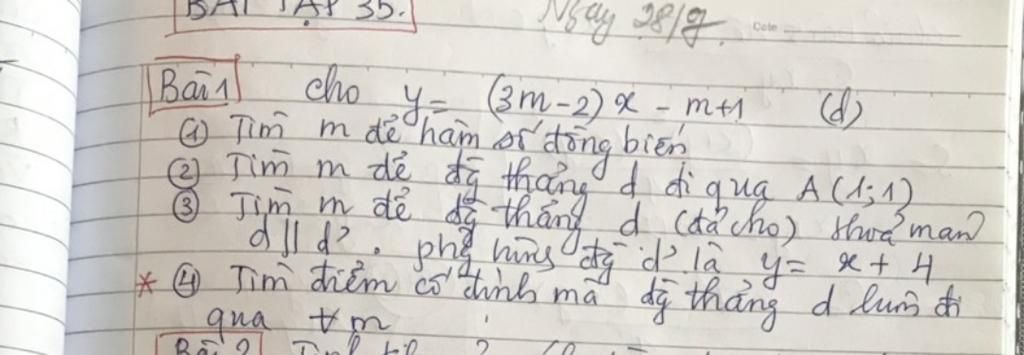 BÀI TẬP 35.
Ngày 28/7.
Date
Bài 1 cho y = (3m-2)x - m+1 (d)
① Tìm m để hàm số đồng biến
② Tìm m để đg thẳng d đi qua A(1;1)
③ Tìm m để đg thẳng d (đã cho) thoả mãn
d || d'. phg trình đg d' là y = x + 4
* ④ Tìm điểm cố định mà đg thẳng d luôn đi
qua ∀ m
Bài 2